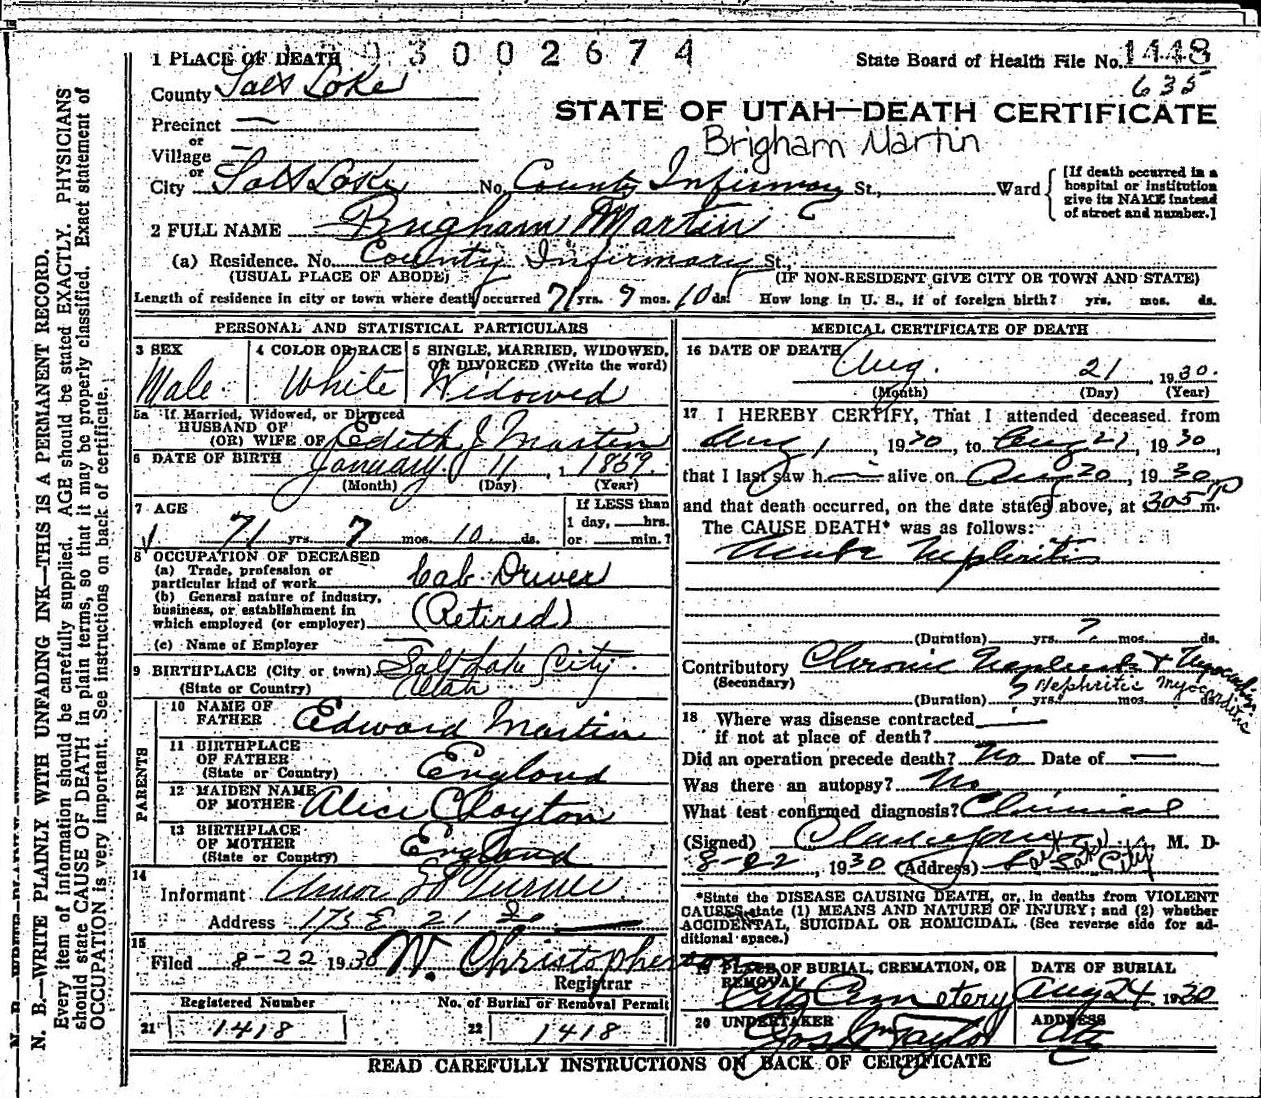 1 PLACE OF DEATH
3 0 0 2 6 7 4
State Board of Health File No. 1448
635
County Salt Lake
STATE OF UTAH—DEATH CERTIFICATE
Brigham Martin
Precinct —
or
Village —
or
City Salt Lake No. County Infirmary St., Ward
[If death occurred in a hospital or institution give its NAME instead of street and number.]
2 FULL NAME Brigham Martin
(a) Residence. No. County Infirmary St.,
(USUAL PLACE OF ABODE) (IF NON-RESIDENT GIVE CITY OR TOWN AND STATE)
Length of residence in city or town where death occurred 71 yrs. 7 mos. 10 ds. How long in U. S., if of foreign birth? yrs. mos. ds.
PERSONAL AND STATISTICAL PARTICULARS
3 SEX
Male
4 COLOR OR RACE
White
5 SINGLE, MARRIED, WIDOWED, OR DIVORCED (Write the word)
Widowed
5a If Married, Widowed, or Divorced
HUSBAND OF
(OR) WIFE OF Edith J Martin
6 DATE OF BIRTH January 11, 1859
(Month) (Day) (Year)
7 AGE
71 yrs. 7 mos. 10 ds.
If LESS than
1 day, hrs.
or min.?
8 OCCUPATION OF DECEASED
(a) Trade, profession or
particular kind of work Cab Driver
(b) General nature of industry,
business, or establishment in
which employed (or employer) (Retired)
(c) Name of Employer —
9 BIRTHPLACE (City or town) Salt Lake City
(State or Country) Utah
PARENTS
10 NAME OF
FATHER Edward Martin
11 BIRTHPLACE
OF FATHER
(State or Country) England
12 MAIDEN NAME
OF MOTHER Alice Clayton
13 BIRTHPLACE
OF MOTHER
(State or Country) England
14
Informant
Address 173 E 21
15
Filed 8-22 1930 W. Christopherson
Registrar
Registered Number
21 1418
No. of Burial or Removal Permit
22 1418
MEDICAL CERTIFICATE OF DEATH
16 DATE OF DEATH
Aug. 21 1930.
(Month) (Day) (Year)
17 I HEREBY CERTIFY, That I attended deceased from
Aug 1, 1930, to Aug 21, 1930,
that I last saw h— alive on Aug 20, 1930,
and that death occurred, on the date stated above, at 305 P m.
The CAUSE DEATH* was as follows:
Acute Nephritis
(Duration) yrs. ? mos. ds.
Contributory Chronic Nephritis + Myocarditis
(Secondary)
Nephritic Myocarditis
(Duration) ? yrs. mos. ds.
18 Where was disease contracted —
if not at place of death?
Did an operation precede death? No Date of —
Was there an autopsy? No
What test confirmed diagnosis? Clinical
(Signed) M. D.
8-22, 1930 (Address) Salt Lake City
*State the DISEASE CAUSING DEATH, or, in deaths from VIOLENT
CAUSES, state (1) MEANS AND NATURE OF INJURY; and (2) whether
ACCIDENTAL, SUICIDAL OR HOMICIDAL. (See reverse side for ad-
ditional space.)
19 PLACE OF BURIAL, CREMATION, OR
REMOVAL
City Cemetery
DATE OF BURIAL
Aug 24 1930
20 UNDERTAKER
Jos Wm Taylor
ADDRESS
City
READ CAREFULLY INSTRUCTIONS ON BACK OF CERTIFICATE
N. B.—WRITE PLAINLY WITH UNFADING INK—THIS IS A PERMANENT RECORD.
Every item of information should be carefully supplied. AGE should be stated EXACTLY. PHYSICIANS
should state CAUSE OF DEATH in plain terms, so that it may be properly classified. Exact statement of
OCCUPATION is very important. See instructions on back of certificate.